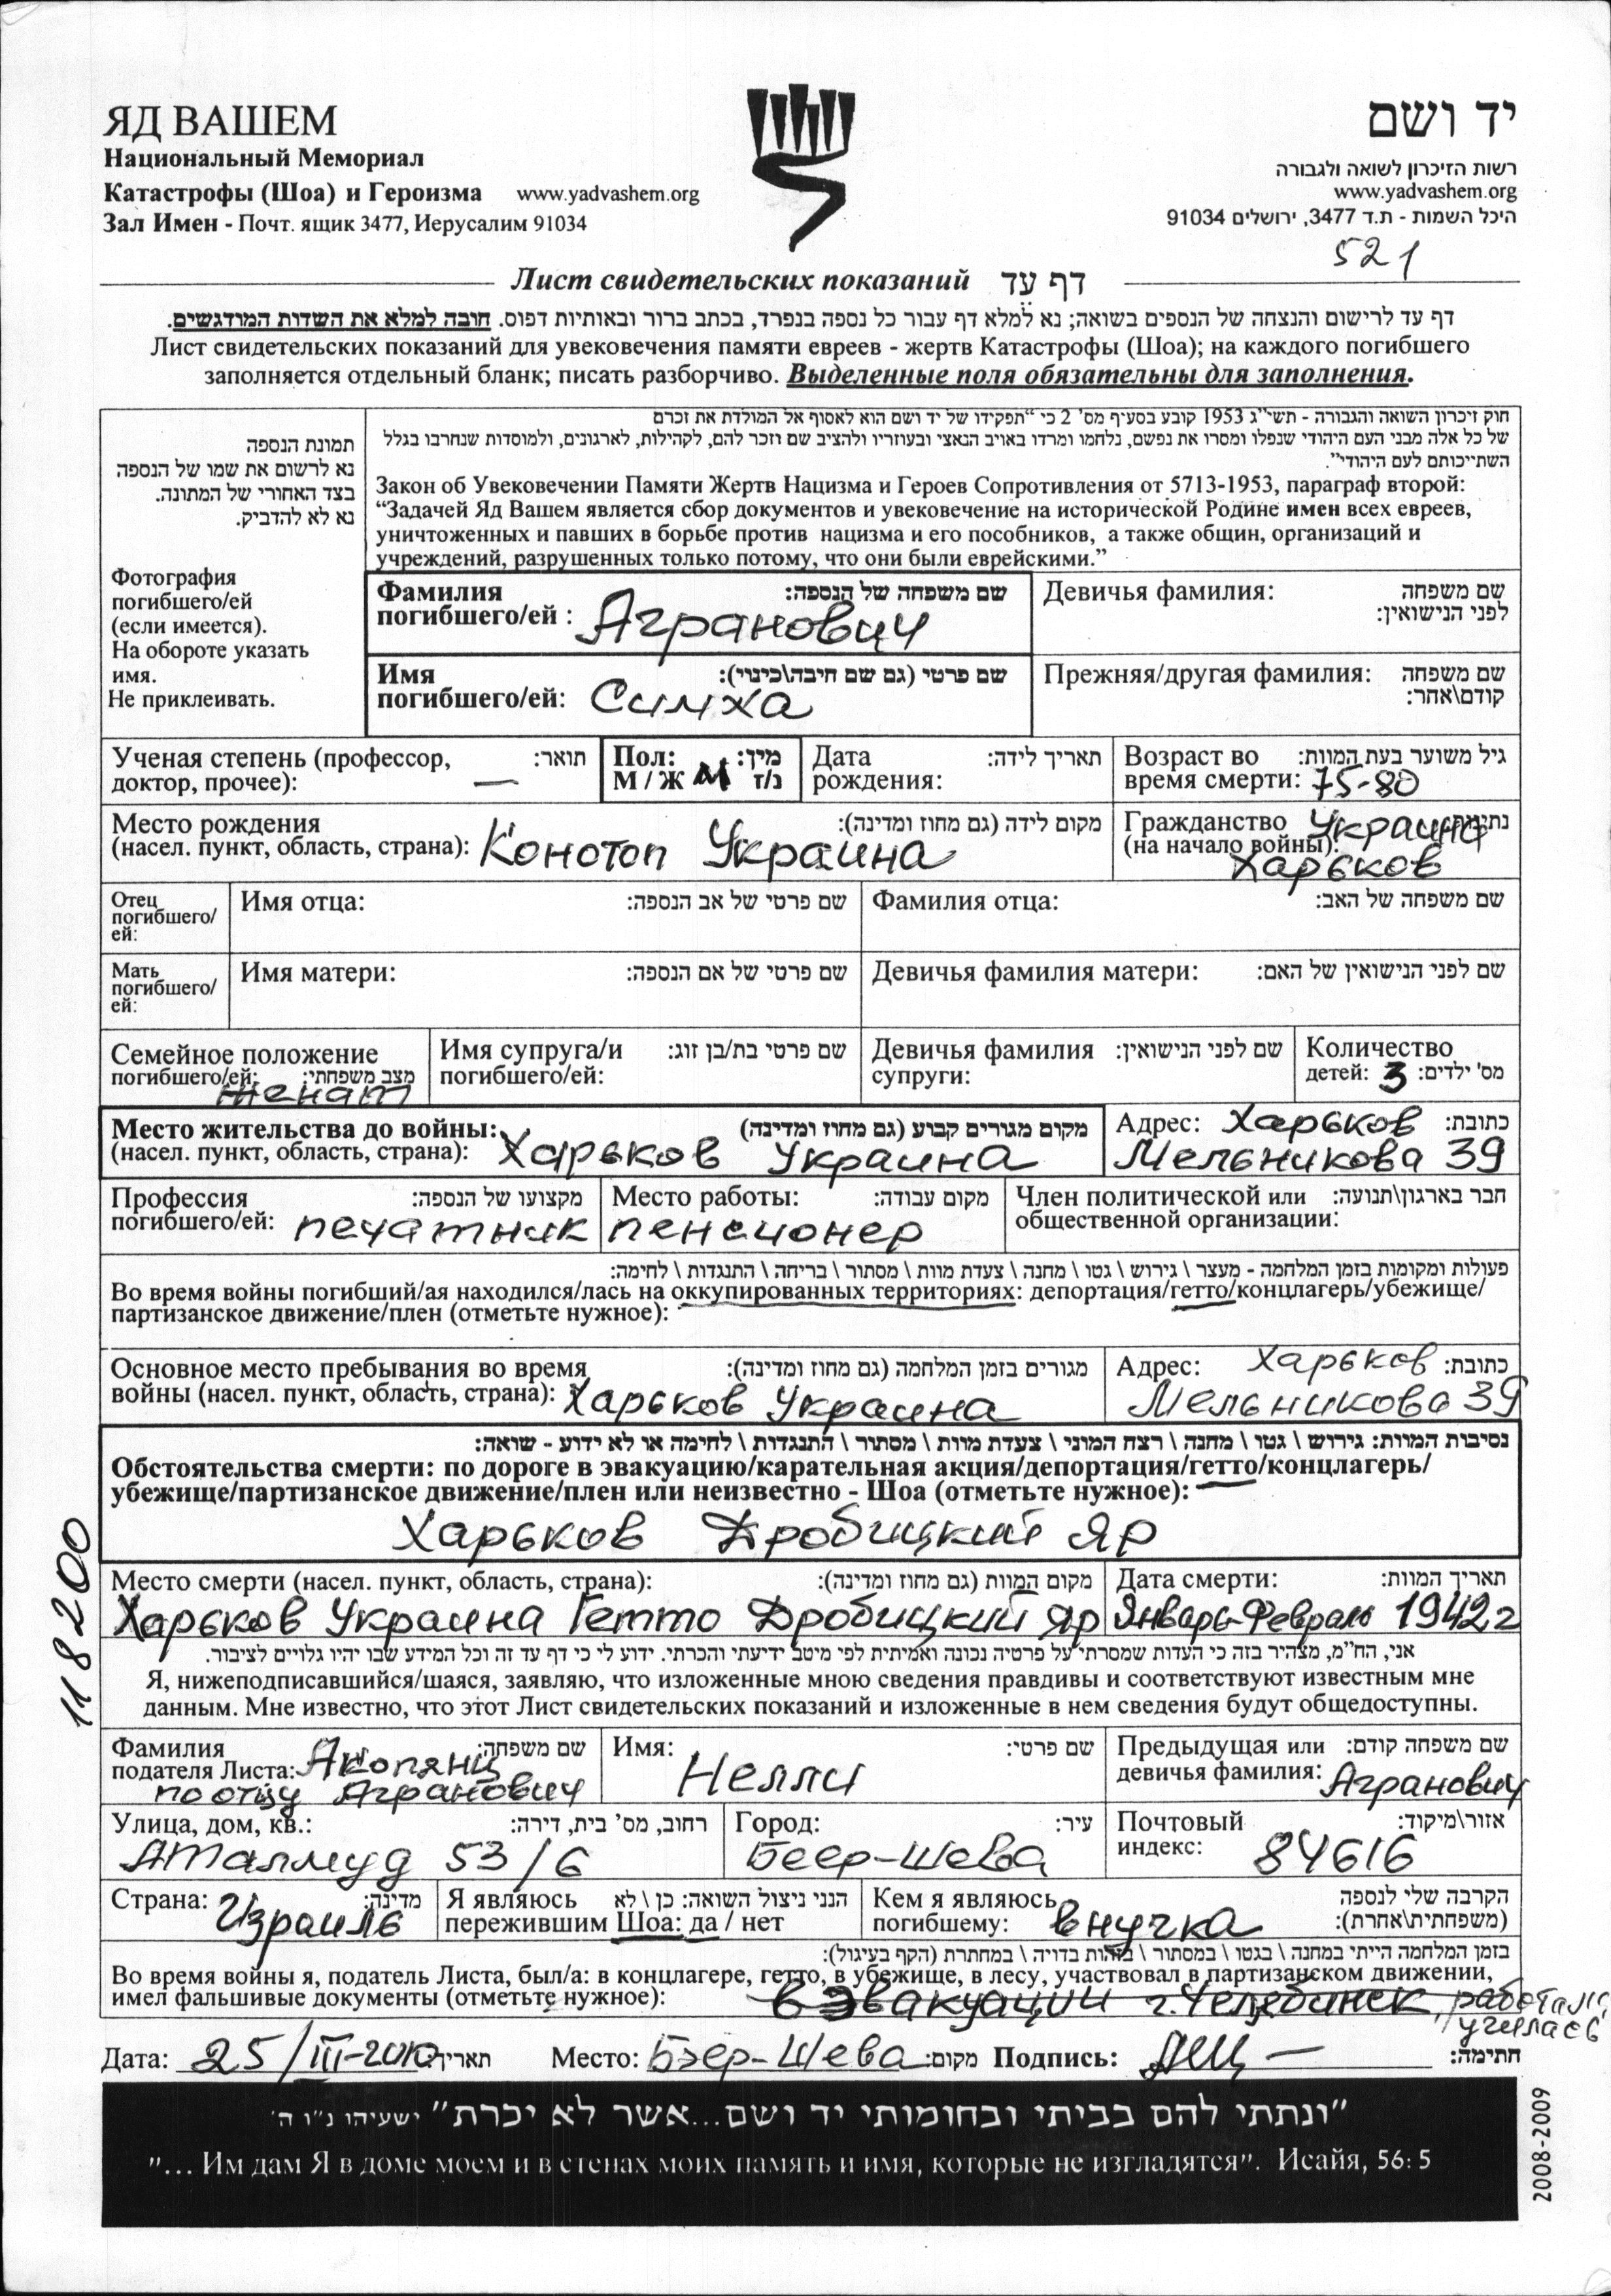 ЯД ВАШЕМ
Национальный Мемориал
Катастрофы (Шоа) и Героизма www.yadvashem.org
Зал Имен - Почт. ящик 3477, Иерусалим 91034
יד ושם
רשות הזיכרון לשואה ולגבורה
www.yadvashem.org
היכל השמות - ת.ד 3477, ירושלים 91034
521
Лист свидетельских показаний דף עד
דף עד לרישום והנצחה של הנספים בשואה; נא למלא דף עבור כל נספה בנפרד, בכתב ברור ובאותיות דפוס. חובה למלא את השדות המודגשים.
Лист свидетельских показаний для увековечения памяти евреев - жертв Катастрофы (Шоа); на каждого погибшего
заполняется отдельный бланк; писать разборчиво. Выделенные поля обязательны для заполнения.
תמונת הנספה
נא לרשום את שמו של הנספה
בצד האחורי של המתונה.
נא לא להדביק.
Фотография
погибшего/ей
(если имеется).
На обороте указать
имя.
Не приклеивать.
חוק זיכרון השואה והגבורה - תשי"ג 1953 קובע בסעיף מס' 2 כי "תפקידו של יד ושם הוא לאסוף אל המולדת את זכרם
של כל אלה מבני העם היהודי שנפלו ומסרו את נפשם, נלחמו ומרדו באויב הנאצי ובעוזריו ולהציב שם וזכר להם, לקהילות, לארגונים, ולמוסדות שנחרבו בגלל
השתייכותם לעם היהודי".
Закон об Увековечении Памяти Жертв Нацизма и Героев Сопротивления от 5713-1953, параграф второй:
“Задачей Яд Вашем является сбор документов и увековечение на исторической Родине имен всех евреев,
уничтоженных и павших в борьбе против нацизма и его пособников, а также общин, организаций и
учреждений, разрушенных только потому, что они были еврейскими.”
Фамилия שם משפחה של הנספה:
погибшего/ей : Агранович
Девичья фамилия: שם משפחה
לפני הנישואין:
Имя שם פרטי (גם שם חיבה\כינוי):
погибшего/ей: Симха
Прежняя/другая фамилия: שם משפחה
קודם\אחר:
Ученая степень (профессор, תואר:
доктор, прочее): —
Пол: מין:
М / Ж М נ/ז
Дата תאריך לידה:
рождения:
Возраст во גיל משוער בעת המוות:
время смерти: 75-80
Место рождения מקום לידה (גם מחוז ומדינה):
(насел. пункт, область, страна): Конотоп Украина
Гражданство Украина
(на начало войны): Харьков
Отец
погибшего/
ей:
Имя отца: שם פרטי של אב הנספה:
Фамилия отца: שם משפחה של האב:
Мать
погибшего/
ей:
Имя матери: שם פרטי של אם הנספה:
Девичья фамилия матери: שם לפני הנישואין של האם:
Семейное положение
погибшего/ей: מצב משפחתי:
женат
Имя супруга/и שם פרטי בת/בן זוג:
погибшего/ей:
Девичья фамилия שם לפני הנישואין:
супруги:
Количество
детей: 3 מס' ילדים:
Место жительства до войны: מקום מגורים קבוע (גם מחוז ומדינה)
(насел. пункт, область, страна): Харьков Украина
Адрес: Харьков כתובת:
Мельникова 39
Профессия מקצועו של הנספה:
погибшего/ей: печатник
Место работы: מקום עבודה:
пенсионер
Член политической или חבר בארגון\תנועה:
общественной организации:
פעולות ומקומות בזמן המלחמה - מעצר \ גירוש \ גטו \ מחנה \ צעדת מוות \ מסתור \ בריחה \ התנגדות \ לחימה:
Во время войны погибший/ая находился/лась на оккупированных территориях: депортация/гетто/концлагерь/убежище/
партизанское движение/плен (отметьте нужное):
Основное место пребывания во время מגורים בזמן המלחמה (גם מחוז ומדינה):
войны (насел. пункт, область, страна): Харьков Украина
Адрес: Харьков כתובת:
Мельникова 39
נסיבות המוות: גירוש \ גטו \ מחנה \ רצח המוני \ צעדת מוות \ מסתור \ התנגדות \ לחימה או לא ידוע - שואה:
Обстоятельства смерти: по дороге в эвакуацию/карательная акция/депортация/гетто/концлагерь/
убежище/партизанское движение/плен или неизвестно - Шоа (отметьте нужное):
Харьков Дробицкий Яр
Место смерти (насел. пункт, область, страна): מקום המוות (גם מחוז ומדינה):
Харьков Украина Гетто Дробицкий Яр
Дата смерти: תאריך המוות:
Январь-Февраль 1942г
אני, הח"מ, מצהיר בזה כי העדות שמסרתי על פרטיה נכונה ואמיתית לפי מיטב ידיעתי והכרתי. ידוע לי כי דף עד זה וכל המידע שבו יהיו גלויים לציבור.
Я, нижеподписавшийся/шаяся, заявляю, что изложенные мною сведения правдивы и соответствуют известным мне
данным. Мне известно, что этот Лист свидетельских показаний и изложенные в нем сведения будут общедоступны.
Фамилия שם משפחה:
податела Листа: Акопянц
по отцу Агранович
Имя: שם פרטי:
Нелли
Предыдущая или שם משפחה קודם:
девичья фамилия: Агранович
Улица, дом, кв.: רחוב, מס' בית, דירה:
Аталмуд 53/6
Город: עיר:
Беер-Шева
Почтовый אזור\מיקוד:
индекс: 84616
Страна: מדינה:
Израиль
Я являюсь הנני ניצול השואה: כן \ לא
пережившим Шоа: да / нет
Кем я являюсь הקרבה שלי לנספה
погибшему: внучка (משפחתית\אחרת):
בזמן המלחמה הייתי במחנה \ בגטו \ במסתור \ בזהות בדויה \ במחתרת (הקף בעיגול):
Во время войны я, податель Листа, был/а: в концлагере, гетто, в убежище, в лесу, участвовал в партизанском движении,
имел фальшивые документы (отметьте нужное): в эвакуации г. Челябинск, работала,
училась
Дата: 25/III-2010 תאריך: Место: Бэер-Шева מקום: Подпись: חתימה:
"ונתתי להם בביתי ובחומותי יד ושם...אשר לא יכרת" ישעיהו נ"ו ה'
"... Им дам Я в доме моем и в стенах моих память и имя, которые не изгладятся". Исайя, 56: 5
118200
2008-2009